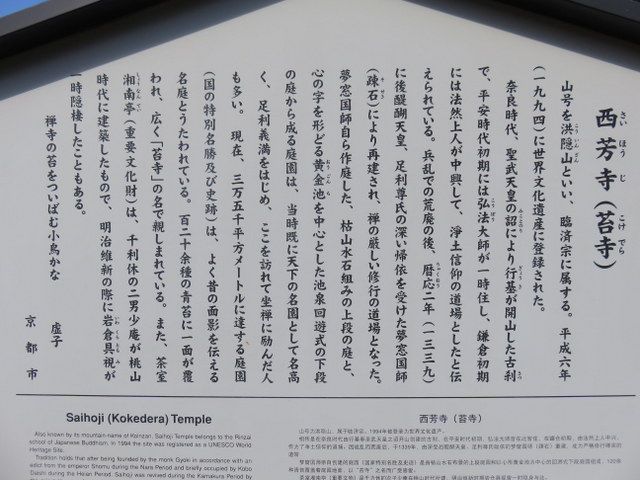 西芳寺（苔寺）
山号を洪隠山といい、臨済宗に属する。平成六年
（一九九四）に世界文化遺産に登録された。
奈良時代、聖武天皇の詔により行基が開山した古刹
で、平安時代初期には弘法大師が一時住し、鎌倉初期
には法然上人が中興して、浄土信仰の道場としたと伝
えられている。兵乱での荒廃の後、暦応二年（一三三九）
に後醍醐天皇、足利尊氏の深い帰依を受けた夢窓国師
（疎石）により再建され、禅の厳しい修行の道場となった。
夢窓国師自ら作庭した、枯山水石組みの上段の庭と、
心の字を形どる黄金池を中心とした池泉回遊式の下段
の庭から成る庭園は、当時既に天下の名園として名高
く、足利義満をはじめ、ここを訪れて坐禅に励んだ人
も多い。現在、三万五千平方メートルに達する庭園
（国の特別名勝及び史跡）は、よく昔の面影を伝える
名庭とうたわれている。百二十余種の青苔に一面が覆
われ、広く「苔寺」の名で親しまれている。また、茶室
湘南亭（重要文化財）は、千利休の二男少庵が桃山
時代に建築したもので、明治維新の際に岩倉具視が
一時隠棲したこともある。
禅寺の苔をついばむ小鳥かな　虚子
京都市
Saihoji (Kokedera) Temple
Also known by its mountain name of Koinzan, Saihoji Temple belongs to the Rinzai
school of Japanese Buddhism. In 1994 the site was registered as a UNESCO World
Heritage Site.
Tradition holds that after being founded by the monk Gyoki in accordance with an
edict from the emperor Shomu during the Nara Period and briefly occupied by Kobo
Daishi during the Heian Period, Saihoji was revived during the Kamakura Period by
西芳寺（苔寺）